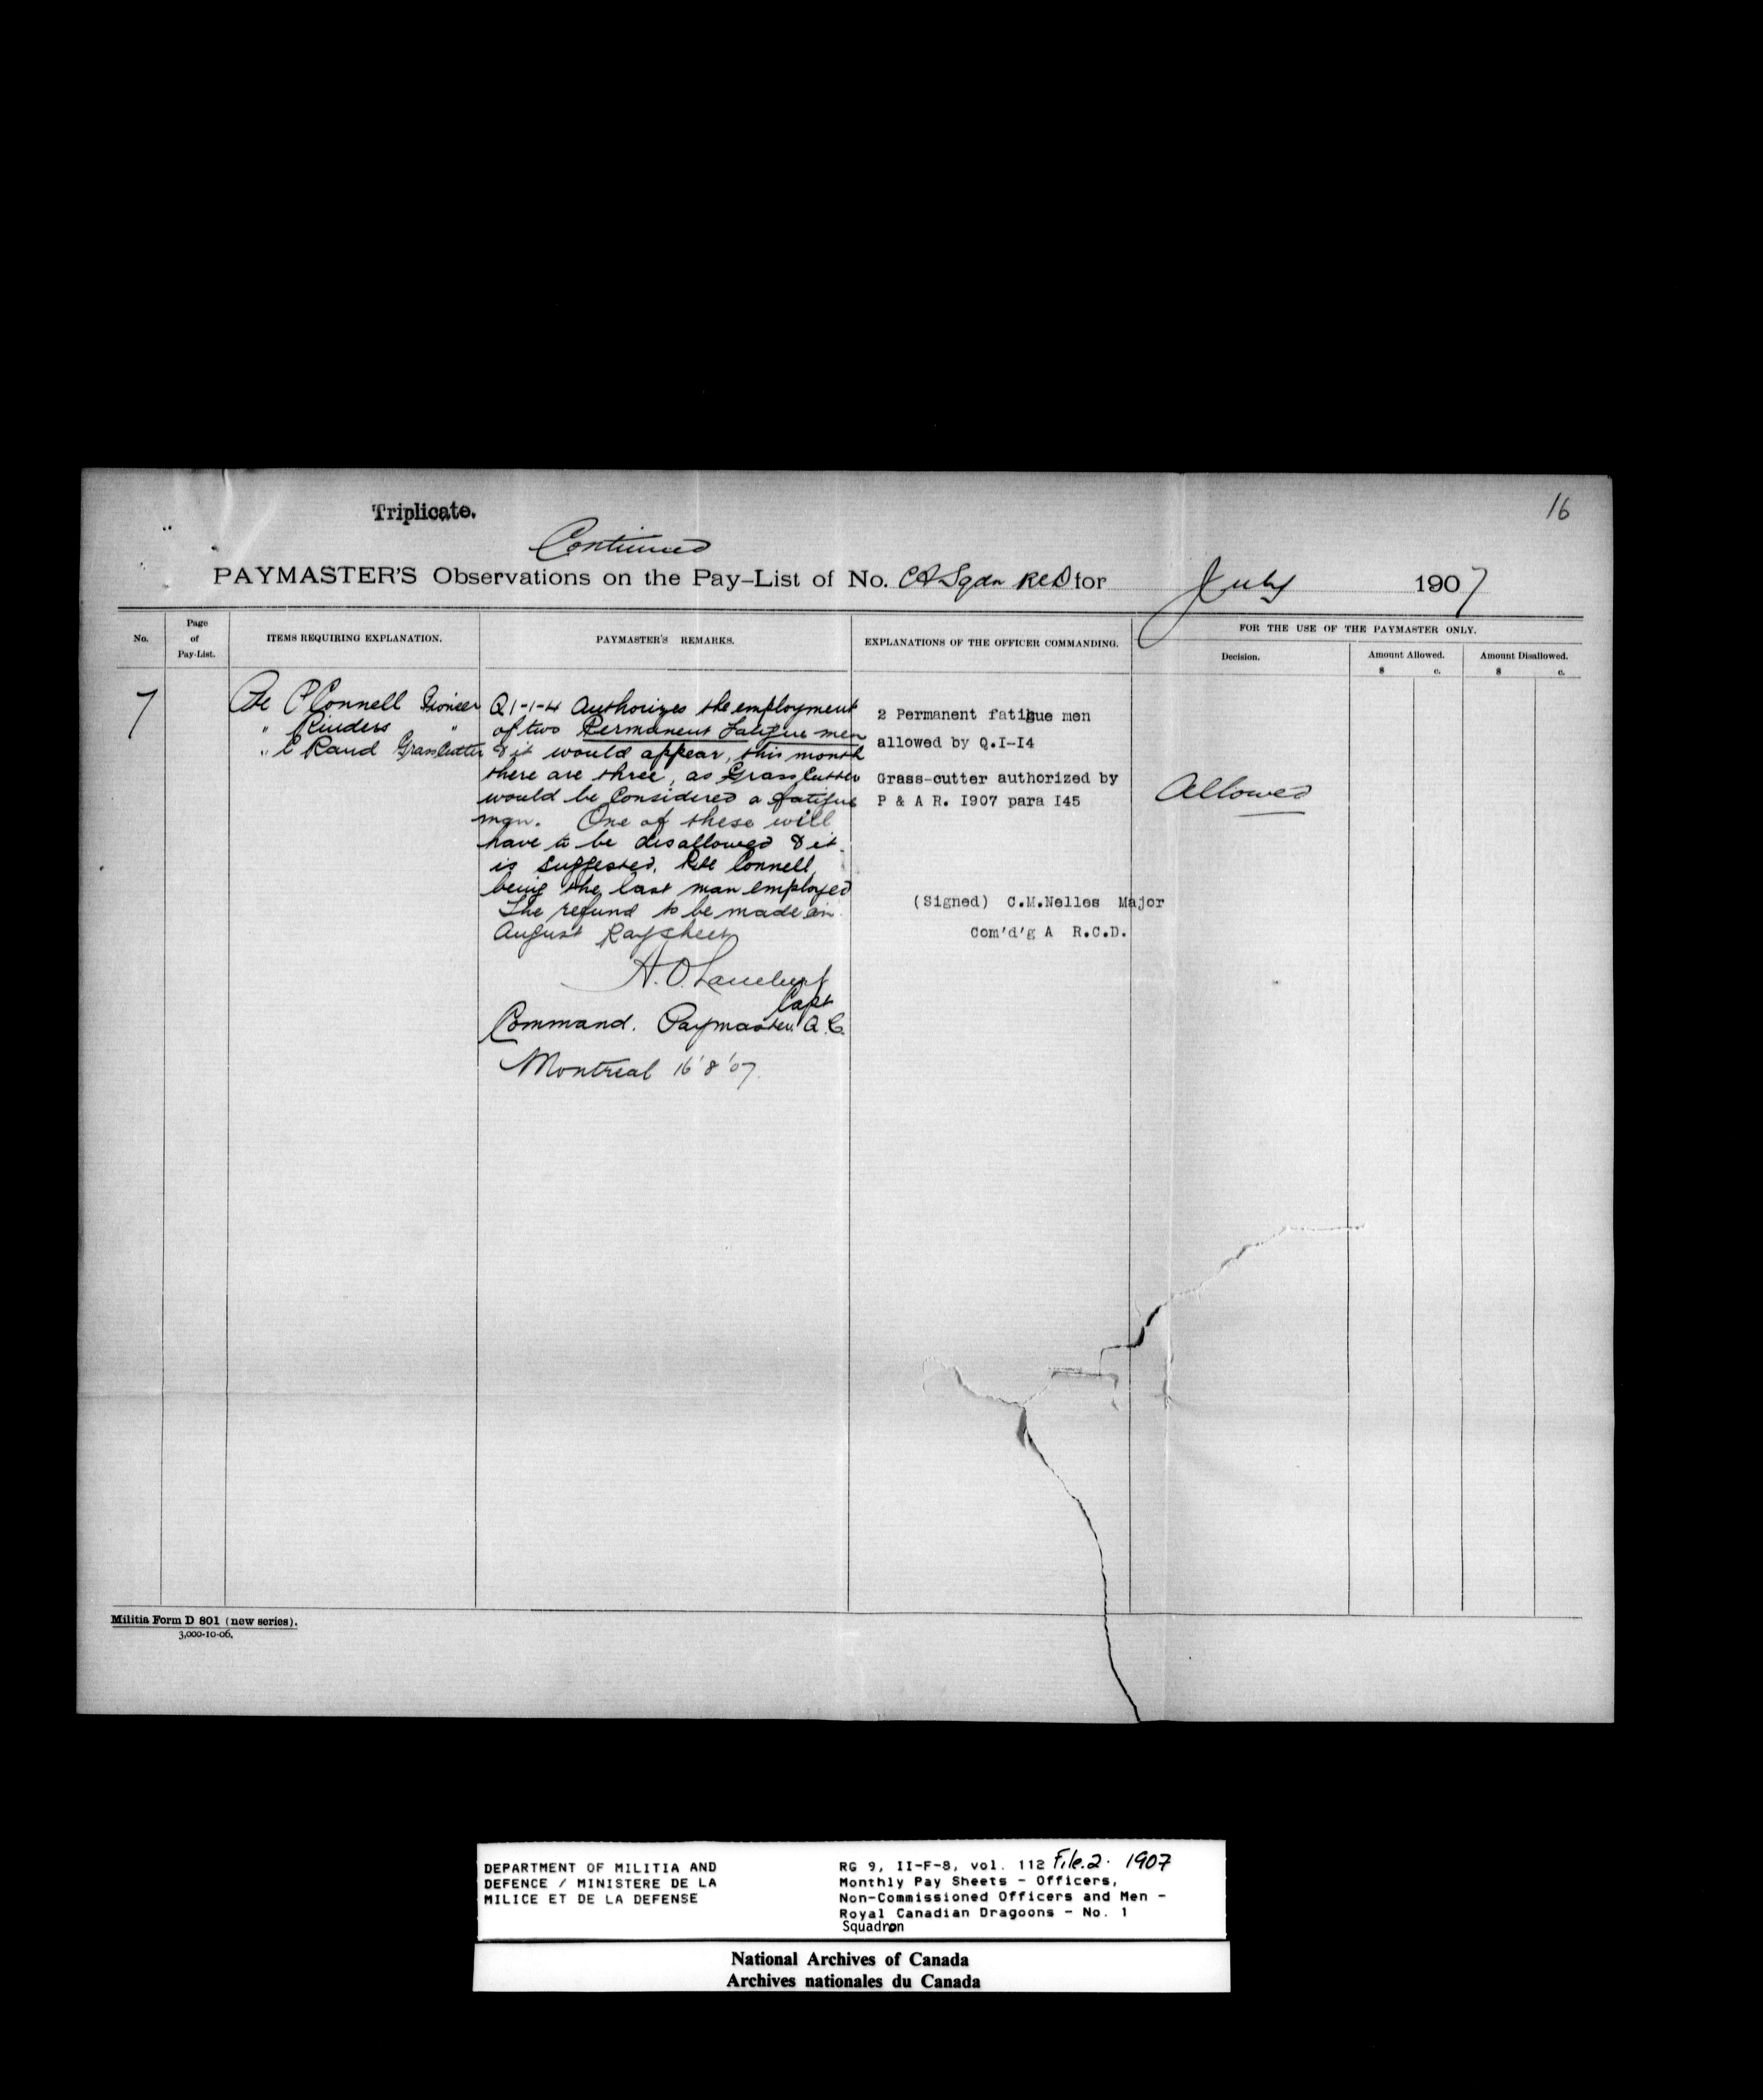 Triplicate.
16
Continued
PAYMASTER'S Observations on the Pay-List of No. "A" Sqdn RCD for July 1907
No.
Page
of
Pay-List.
ITEMS REQUIRING EXPLANATION.
PAYMASTER'S REMARKS.
EXPLANATIONS OF THE OFFICER COMMANDING.
FOR THE USE OF THE PAYMASTER ONLY.
Decision.
Amount Allowed.
Amount Disallowed.
$ c.
$ c.
7
Pte P Connell Pioneer
" Kinders "
" C Rand Grass Cutter
Q 1-1-4 Authorizes the employment
of two Permanent Fatigue men
& it would appear, this month
there are three, as Grass Cutter
would be Considered a fatigue
man. One of these will
have to be disallowed & it
is suggested, Pte Connell,
being the last man employed
The refund to be made in
August Paysheet
A.O. Lambert
Capt
Command. Paymaster. Q.C.
Montreal 16'8'07.
2 Permanent fatigue men
allowed by Q.I-I4
Grass-cutter authorized by
P & A R. I907 para I45
(Signed) C.M.Nelles Major
Com'd'g A R.C.D.
Allowed
Militia Form D 801 (new series).
3,000-10-06.
DEPARTMENT OF MILITIA AND
DEFENCE / MINISTERE DE LA
MILICE ET DE LA DEFENSE
RG 9, II-F-8, vol. 112 File.2. 1907
Monthly Pay Sheets - Officers,
Non-Commissioned Officers and Men -
Royal Canadian Dragoons - No. 1
Squadron
National Archives of Canada
Archives nationales du Canada